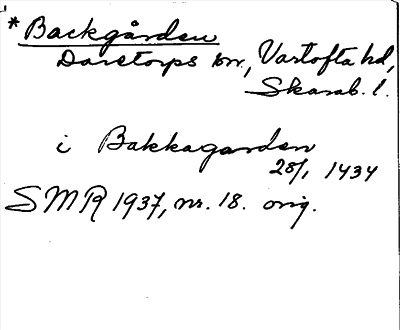 * Backgården
Daretorps sn., Vartofta hd,
Skarab. l.
i Bakkagarden
28/1 1434
SMR 1937, nr. 18. orig.